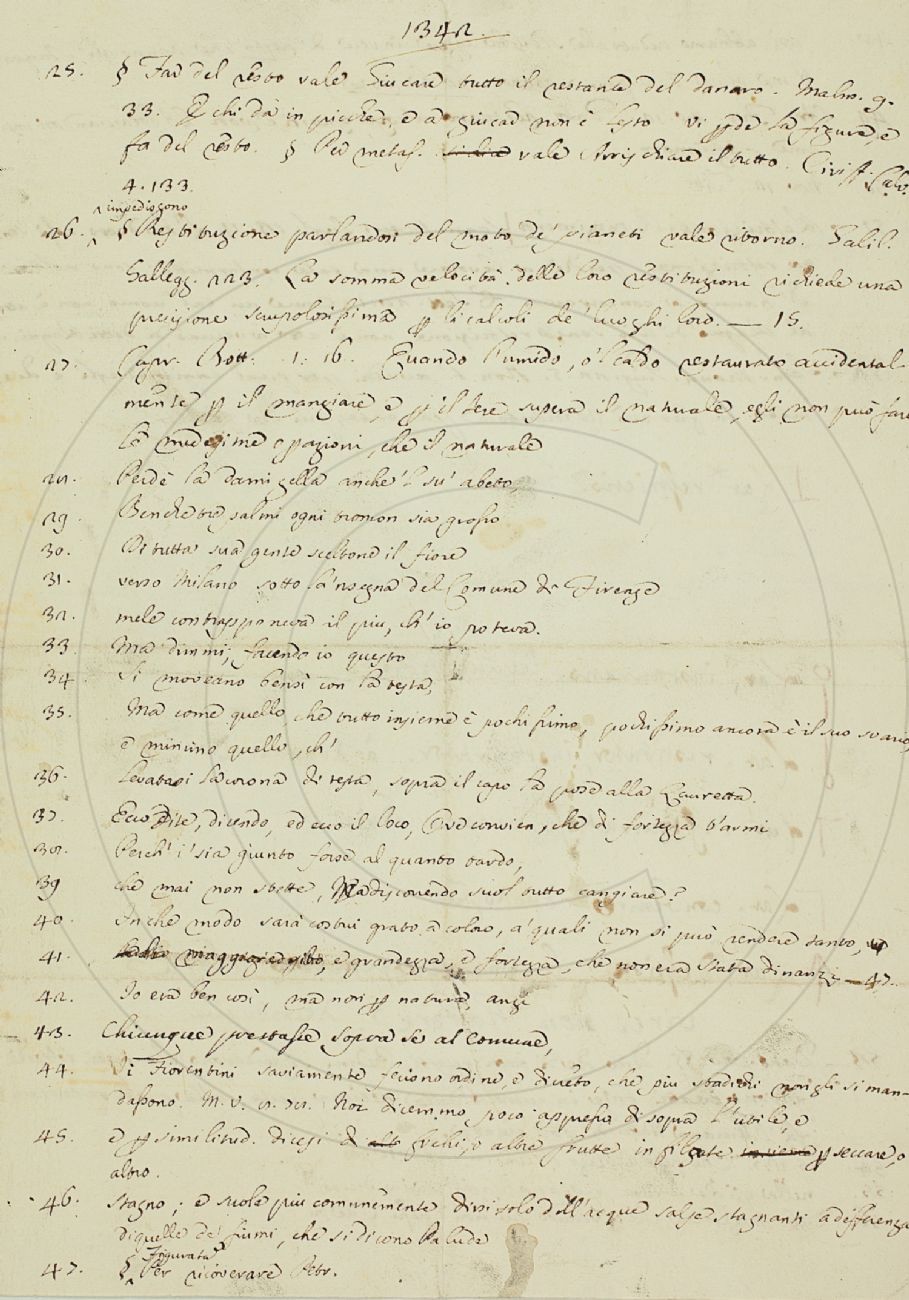 1342.
25. § Far del resto vale Giucare tutto il restante del danaro. Malm. 9.
33. E chi dà in picche, e a giucar non è lesto vi pde la figura, e
fa del resto. § Per metaf. vale Arrischiare il tutto. Ciriff. Calv.
4. 133.
impediscono
26. § Restituzione parlandosi del moto de' pianeti vale ritorno. Galil.
Gallegg. 223. La somma velocità delle loro restituzioni richiede una
precisione scrupolosissima p li calcoli de' luoghi loro. — 15.
27. Capr. Bott. 1. 16. Quando l'umido, o 'l caldo restaurato accidental-
mente p il mangiare, e p il bere supera il naturale, egli non può fare
le medesime opazioni, che il naturale
28. Perdè la damigella anche 'l su' abeto,
29. Benche tre salmi ogni tromon sia grosso
30. Di tutta sua gente sceltone il fiore
31. verso Milano sotto la 'nsegna del Comune di Firenze
32. mele contrapponeva il piu, ch' io poteva.
33. Ma dimmi, facendo io questo
34. Si moveano bensì con la testa,
35. Ma come quello, che tutto insieme è pochissimo, pochissimo ancora è il suo svario,
e minimo quello, ch'
36. Levatasi la corona di testa, sopra il capo la pose alla Lauretta.
37. Ecco Dite, dicendo, ed ecco il loco, Ove convien, che di fortezza t'armi
38. Perch' i' sia giunto forse al quanto tardo,
39 che mai non stette, Ma discorrendo suol tutto cangiare?
40. In che modo sarà costui grato a coloro, a' quali non si può rendere tanto,
41. e grandezza, e fortezza, che non era stata dinanzi — 47.
42. Io era ben così, ma non p natura, anzi
43. Chiunque prestasse sopra se al Comune,
44. I Fiorentini saviamente feciono ordine, e divieto, che piu sbanditi non gli si man-
dassono. M. V. 8. 78. Noi dicemmo poco appresso di sopra l'utile, e
45. e p similitud. dicesi di fichi, o altre frutte infilzate p seccare, o
altro.
46. Stagno; e suole piu comunemente dirsi solo dell'acque salse stagnanti a differenza
di quelle de' fiumi, che si dicono Palude
Figurata
47. § Per ricoverare Petr.